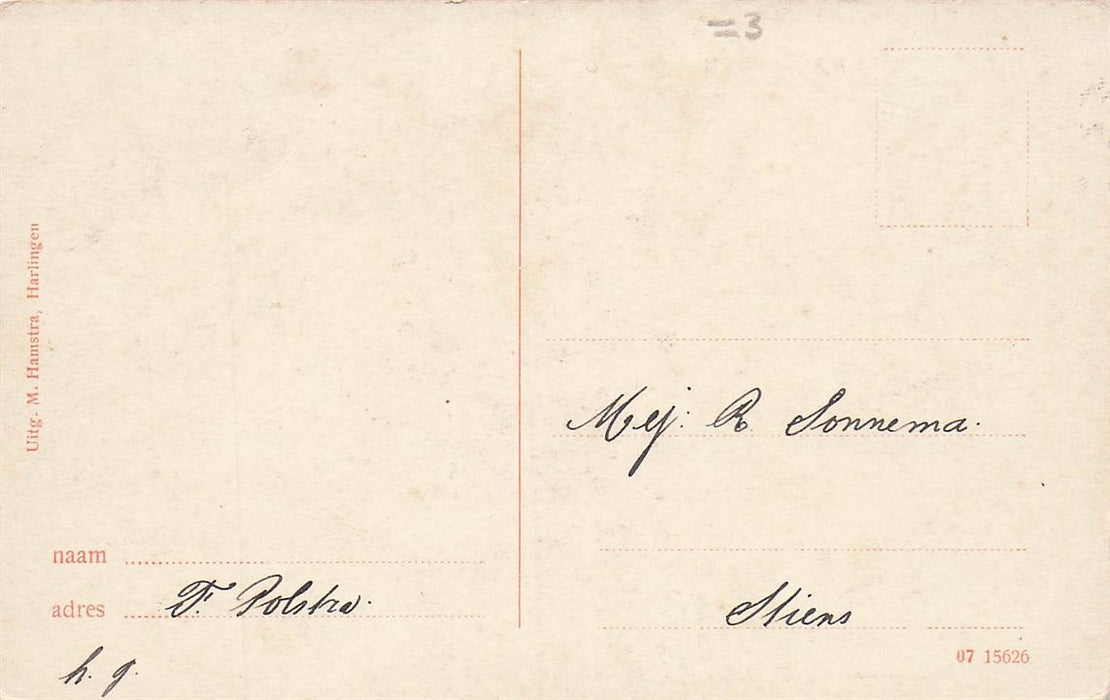 =3
Uitg. M. Hamstra, Harlingen
Mej. R. Sonnema.
naam
adres F. Polstra.
Stiens
07 15626
h. g.